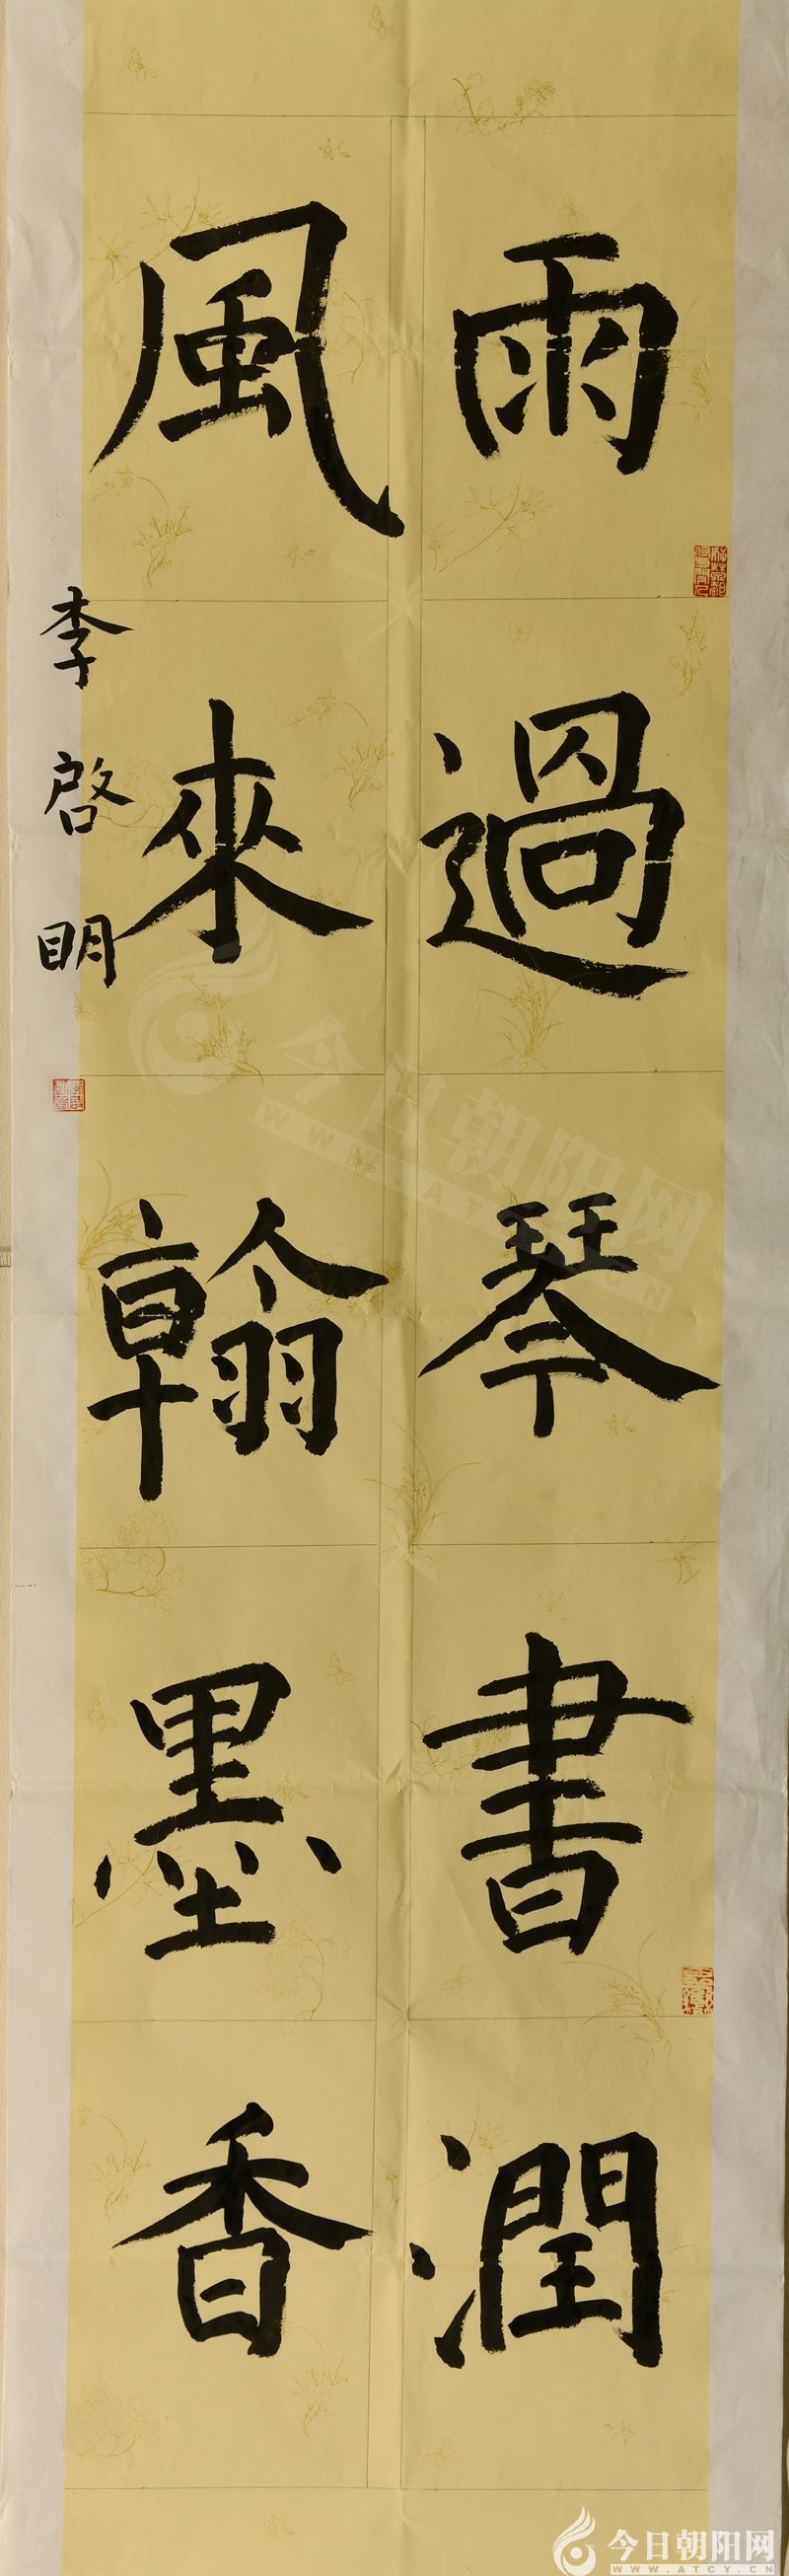 雨過琴書潤
風來翰墨香
李啓明
今日朝阳网
WWW.ATCY.CN
今日朝阳网
WWW.ATCY.CN